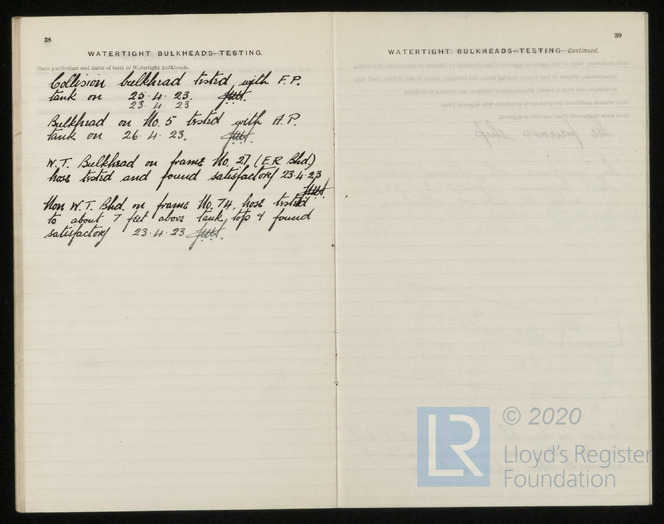 38
WATERTIGHT BULKHEADS—TESTING.
State particulars and dates of tests of Watertight Bulkheads.
Collision bulkhead tested with F.P.
tank on 23.4.23.
23 4 23
Bulkhead on No. 5 tested with A.P.
tank on 26.4.23.
W.T. Bulkhead on frame No. 27, (E.R. Bhd.)
hose tested and found satisfactory 23.4.23
Non W.T. Bhd. on frame No. 74, hose tested
to about 7 feet above tank top & found
satisfactory 23.4.23
39
WATERTIGHT BULKHEADS—TESTING—Continued.
LR
© 2020
Lloyd's Register
Foundation